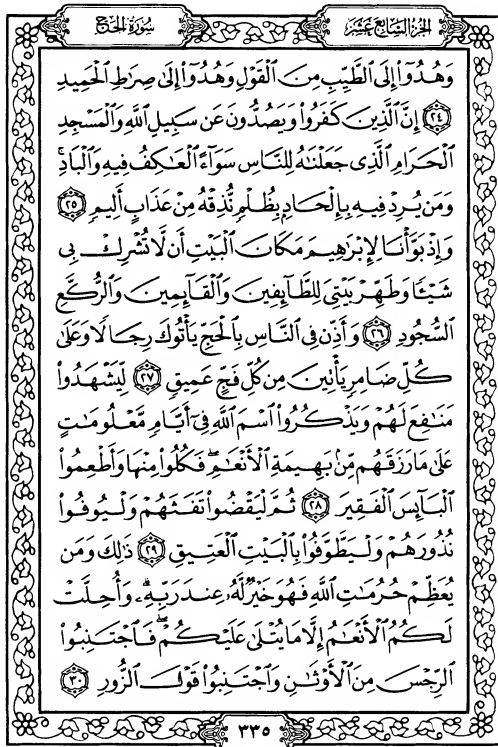 سُورَةُ الحَجِّ
الجُزْءُ السَّابِعَ عَشَرَ
وَهُدُوٓا۟ إِلَى ٱلطَّيِّبِ مِنَ ٱلْقَوْلِ وَهُدُوٓا۟ إِلَىٰ صِرَٰطِ ٱلْحَمِيدِ
٢٤ إِنَّ ٱلَّذِينَ كَفَرُوا۟ وَيَصُدُّونَ عَن سَبِيلِ ٱللَّهِ وَٱلْمَسْجِدِ
ٱلْحَرَامِ ٱلَّذِى جَعَلْنَٰهُ لِلنَّاسِ سَوَآءً ٱلْعَٰكِفُ فِيهِ وَٱلْبَادِ ۚ
وَمَن يُرِدْ فِيهِ بِإِلْحَادٍۭ بِظُلْمٍ نُّذِقْهُ مِنْ عَذَابٍ أَلِيمٍ ٢٥
وَإِذْ بَوَّأْنَا لِإِبْرَٰهِيمَ مَكَانَ ٱلْبَيْتِ أَن لَّا تُشْرِكْ بِى
شَيْـًٔا وَطَهِّرْ بَيْتِىَ لِلطَّآئِفِينَ وَٱلْقَآئِمِينَ وَٱلرُّكَّعِ
ٱلسُّجُودِ ٢٦ وَأَذِّن فِى ٱلنَّاسِ بِٱلْحَجِّ يَأْتُوكَ رِجَالًا وَعَلَىٰ
كُلِّ ضَامِرٍ يَأْتِينَ مِن كُلِّ فَجٍّ عَمِيقٍ ٢٧ لِّيَشْهَدُوا۟
مَنَٰفِعَ لَهُمْ وَيَذْكُرُوا۟ ٱسْمَ ٱللَّهِ فِىٓ أَيَّامٍ مَّعْلُومَٰتٍ
عَلَىٰ مَا رَزَقَهُم مِّنۢ بَهِيمَةِ ٱلْأَنْعَٰمِ ۖ فَكُلُوا۟ مِنْهَا وَأَطْعِمُوا۟
ٱلْبَآئِسَ ٱلْفَقِيرَ ٢٨ ثُمَّ لْيَقْضُوا۟ تَفَثَهُمْ وَلْيُوفُوا۟
نُذُورَهُمْ وَلْيَطَّوَّفُوا۟ بِٱلْبَيْتِ ٱلْعَتِيقِ ٢٩ ذَٰلِكَ وَمَن
يُعَظِّمْ حُرُمَٰتِ ٱللَّهِ فَهُوَ خَيْرٌ لَّهُۥ عِندَ رَبِّهِۦ ۗ وَأُحِلَّتْ
لَكُمُ ٱلْأَنْعَٰمُ إِلَّا مَا يُتْلَىٰ عَلَيْكُمْ ۖ فَٱجْتَنِبُوا۟
ٱلرِّجْسَ مِنَ ٱلْأَوْثَٰنِ وَٱجْتَنِبُوا۟ قَوْلَ ٱلزُّورِ ٣٠
٣٣٥